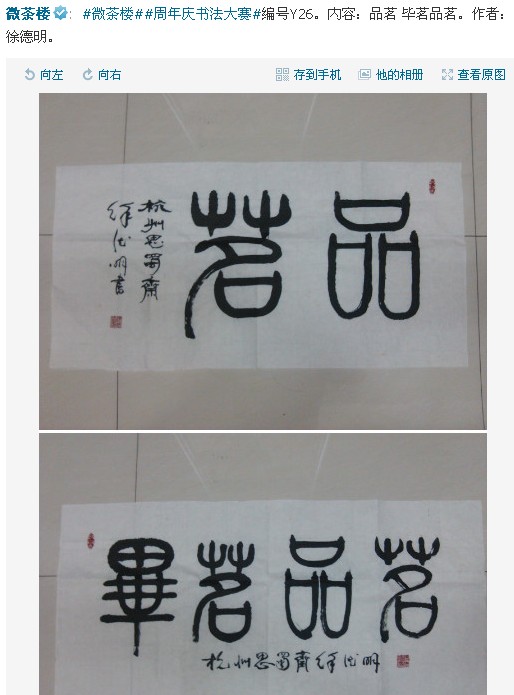 微茶楼：#微茶楼##周年庆书法大赛#编号Y26。内容：品茗 毕茗品茗。作者：
徐德明。
向左 向右 存到手机 他的相册 查看原图
品茗
杭州思蜀齋
徐德明書
畢茗品茗
杭州思蜀齋徐德明